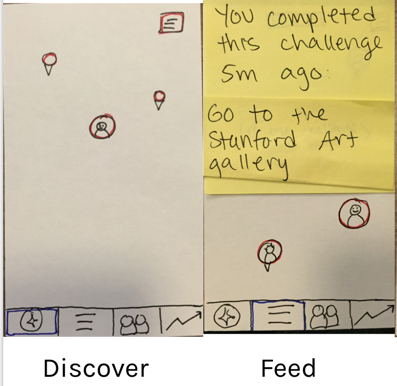 You completed
this challenge
5m ago:
Go to the
Stanford Art
gallery
Discover
Feed